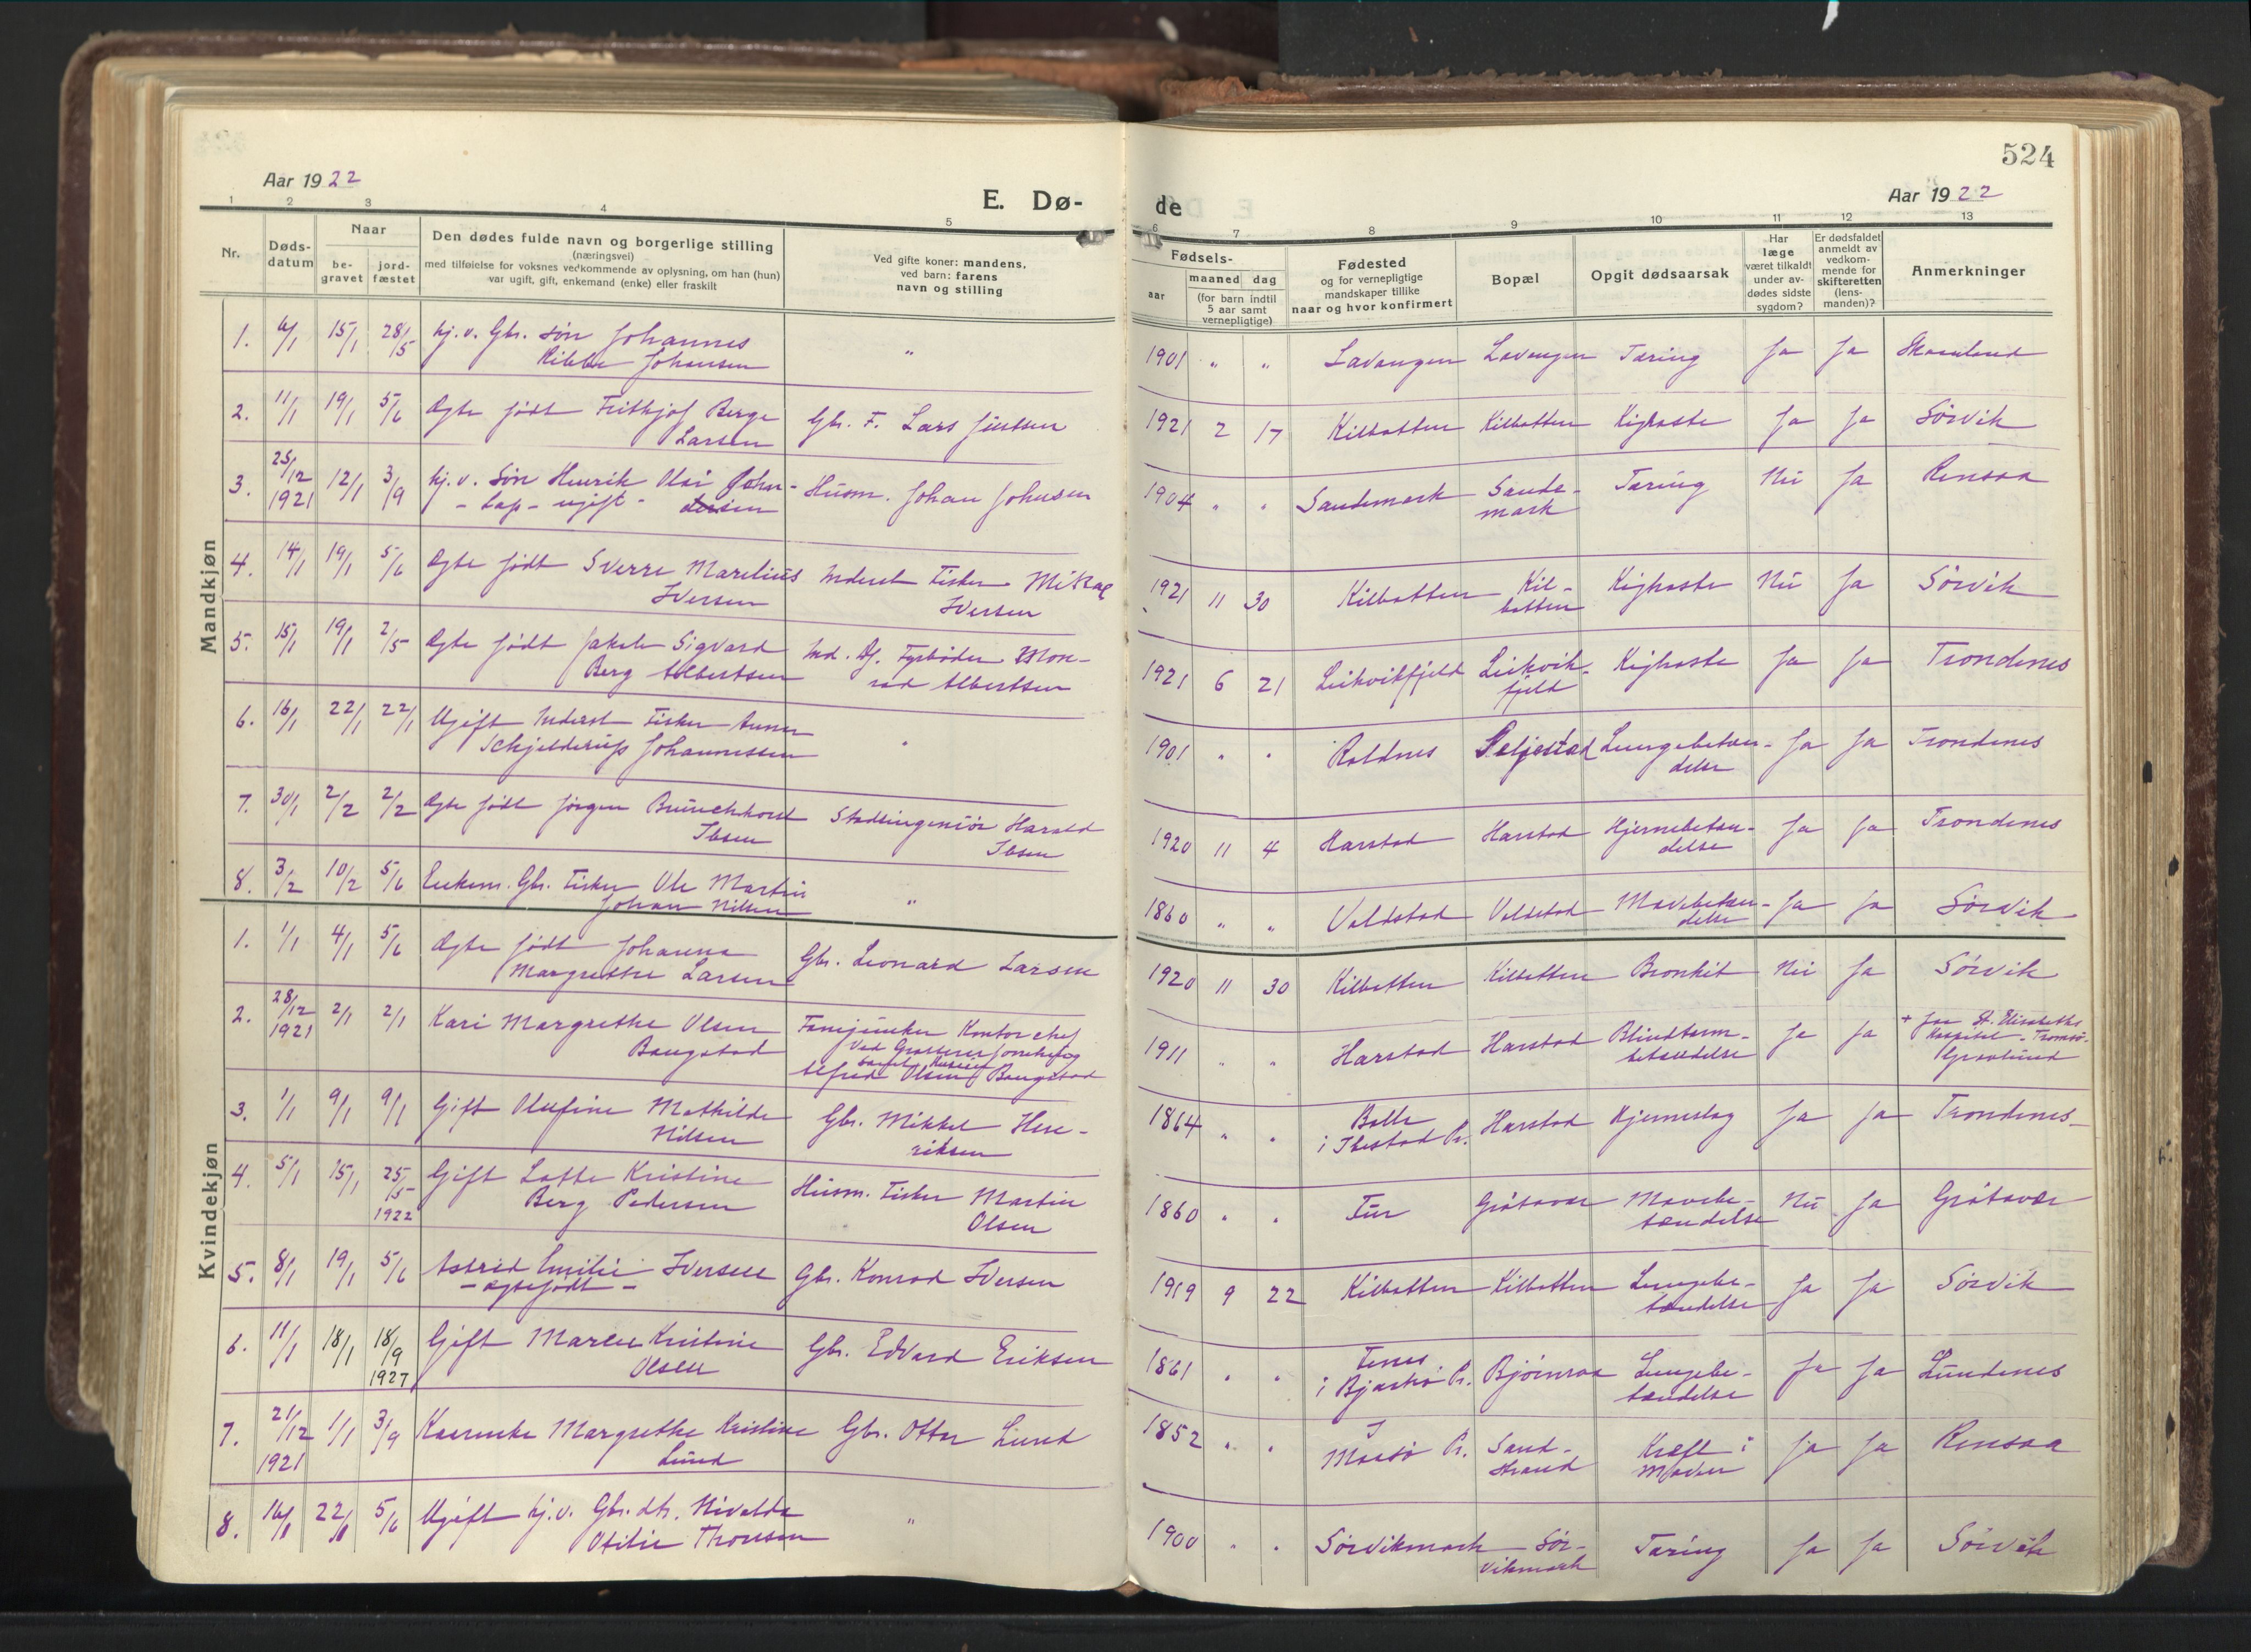 524
Aar 1922
E. Dø-
de
Aar 1922
1 2 3 4 5
6 7 8 9 10 11 12 13
Nr.
Døds-
datum
Naar
be-
gravet
jord-
fæstet
Den dødes fulde navn og borgerlige stilling
(næringsvei)
med tilføielse for voksnes vedkommende av oplysning, om han (hun)
var ugift, gift, enkemand (enke) eller fraskilt
Ved gifte koner: mandens,
ved barn: farens
navn og stilling
Fødsels-
aar
maaned dag
(for barn indtil
5 aar samt
vernepligtige)
Fødested
og for vernepligtige
mandskaper tillike
naar og hvor konfirmert
Bopæl
Opgit dødsaarsak
Har
læge
været tilkaldt
under av-
dødes sidste
sygdom?
Er dødsfaldet
anmeldt av
vedkom-
mende for
skifteretten
(lens-
manden)?
Anmerkninger
Mandkjøn
1. 6/1 15/1 28/5 hj. v. Gbr. søn Johannes
Johansen " 1901 " " Lavangen Lavangen Tæring Ja Ja Skaanland
2. 11/1 19/1 5/6 Ægte født Frithjof Berge
Larsen Gbr. F. Lars Jentsen 1921 2 17 Kilbotten Kilbotten Kighoste Ja Ja Sörvik
3. 25/12
1921 12/1 3/9 hj. v. Søn Henrik Olai John-
- lap - ugift - sen Husm. Johan Johnsen 1904 " " Sandemark Sande-
mark Tæring Nei Ja Rensaa
4. 14/1 19/1 5/6 Ægte født Sverre Marelius
Iversen Inderst Fisker Mikal
Iversen 1921 11 30 Kilbotten Kil-
botten Kighoste Nei Ja Sörvik
5. 15/1 19/1 2/5 Ægte født Jakob Sigvard
Berg Albertsen Ind. Fyrbøder Mon-
rad Albertsen 1921 6 21 Leikvikfjeld Leikvik-
fjeld Kighoste Ja Ja Trondenes
6. 16/1 22/1 22/1 Ugift Inderst Fisker
Schjelderup Johannessen " 1901 " " Roldnes Seljestad Lungebetæn-
delse Ja Ja Trondenes
7. 30/1 2/2 2/2 Ægte født Jørgen Brunchhorst
Ibsen Stadsingeniör Harald
Ibsen 1920 11 4 Harstad Harstad Hjernebetæn-
delse Ja Ja Trondenes
8. 3/2 10/2 5/6 Enkem. Gbr. Fisker Ole Martin
Johan Nilsen " 1860 " " Voldstad Voldstad Mavebetæn-
delse Ja Ja Sörvik
Kvindekjøn
1. 1/1 4/1 5/6 Ægte født Johanna
Margrethe Larsen Gbr. Leonard Larsen 1920 11 30 Kilbotten Kilbotten Bronkit Nei Ja Sörvik
2. 28/12
1921 2/1 2/1 Kari Margrethe Olsen
Baugstad Kontorchef
ved
Alfred Olsen Baugstad 1911 " " Harstad Harstad Blindtarm-
betændelse Ja Ja + paa St. Elisabeths
Hospital. Tromsø.
Gravlund
3. 1/1 9/1 9/1 Gift Olufine Mathilde
Nilsen Gbr. Mikkel Hen-
riksen 1864 " " Bolle
i Ibestad Pr. Harstad Hjerneslag Ja Ja Trondenes
4. 5/1 15/1 25/5
1922 Gift Lotte Kristine
Berg Pedersen Husm. Fisker Martin
Olsen 1860 " " Grötavær Mavebe-
tændelse Nei Ja Grötavær
5. 8/1 19/1 5/6 Astrid Emilie Iversen
- ægtefødt - Gbr. Konrad Iversen 1919 9 22 Kilbotten Kilbotten Lungebe-
tændelse Ja Ja Sörvik
6. 11/1 18/1 18/9
1927 Gift Maren Kristine
Olsen Gbr. Edvard Eriksen 1861 " " Tenes
i Bjarkö Pr. Bjørnraa Lungebe-
tændelse Ja Ja Lundenes
7. 21/12
1921 1/1 3/9 Margrethe Kristine
Lund Gbr. Ottar Lund 1852 " " I
Maasö Pr. Sand-
strand Kræft i
Maven Ja Ja Rensaa
8. 16/1 22/1 5/6 Ugift hj. v. Gbr. dtr. Hivolda
Otilie Thoresen " 1900 " " Sörvikmark Sör-
vikmark Tæring Ja Ja Sörvik